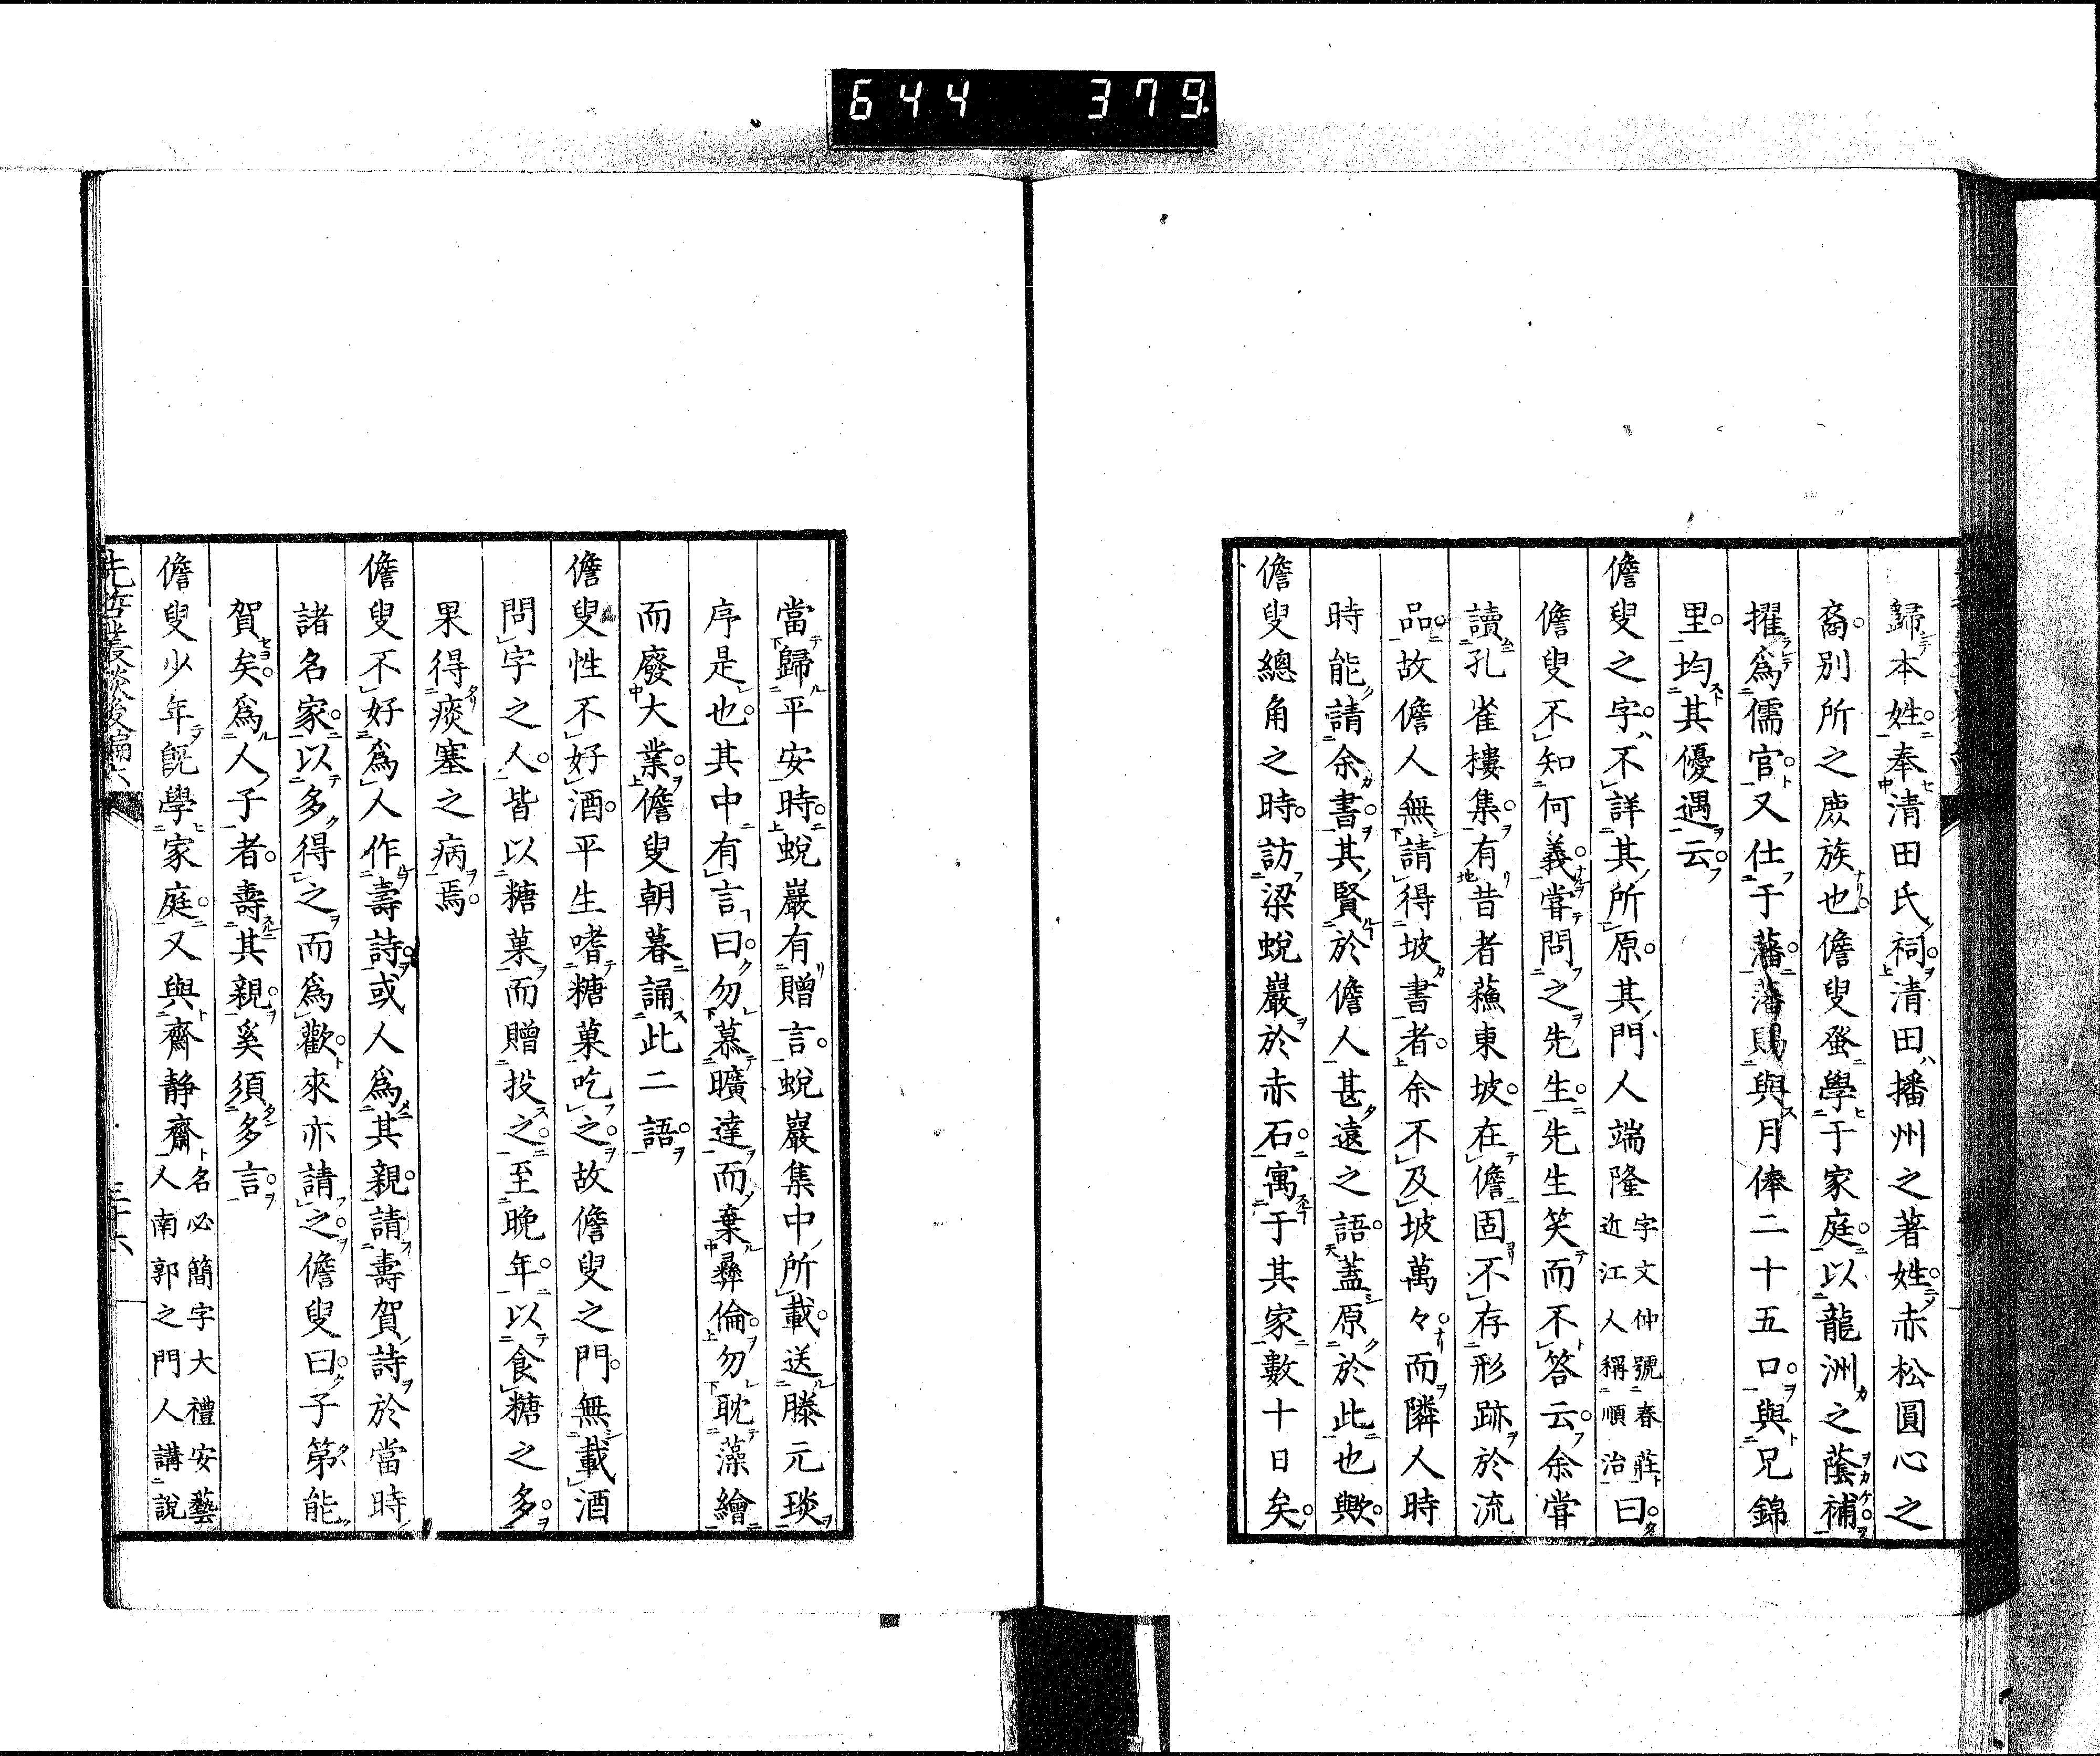 644 379
歸本姓奉清田氏祠清田播州之著姓赤松圓心之
裔別所之庶族也儋叟蚤學于家庭以龍洲之蔭補
擢爲儒官又仕于藩藩賜與月俸二十五口與兄錦
里均其優遇云
儋叟之字不詳其所原其門人端隆字文仲號春莊近江人稱順治曰
儋叟不知何義嘗問之先生先生笑而不答云余嘗
讀孔雀樓集有昔者蘓東坡在儋固不存形跡於流
品故儋人無請得坡書者余不及坡萬々而隣人時
時能請余書其賢於儋人甚遠之語蓋原於此也歟
儋叟總角之時訪梁蛻巖於赤石寓于其家數十日矣
當歸平安時蛻巖有贈言蛻巖集中所載送滕元琰
序是也其中有言曰勿慕曠達而棄彝倫勿耽藻繪
而廢大業儋叟朝暮誦此二語
儋叟性不好酒平生嗜糖菓吃之故儋叟之門無載酒
問字之人皆以糖菓而贈投之至晚年以食糖之多
果得痰塞之病焉
儋叟不好爲人作壽詩或人爲其親請壽賀詩於當時
諸名家以多得之而爲歡來亦請之儋叟曰子第能
賀矣爲人子者壽其親奚須多言
儋叟少年旣學家庭又與齋静齋名必簡字大禮安藝人南郭之門人講說
先哲叢談後編六
三十六